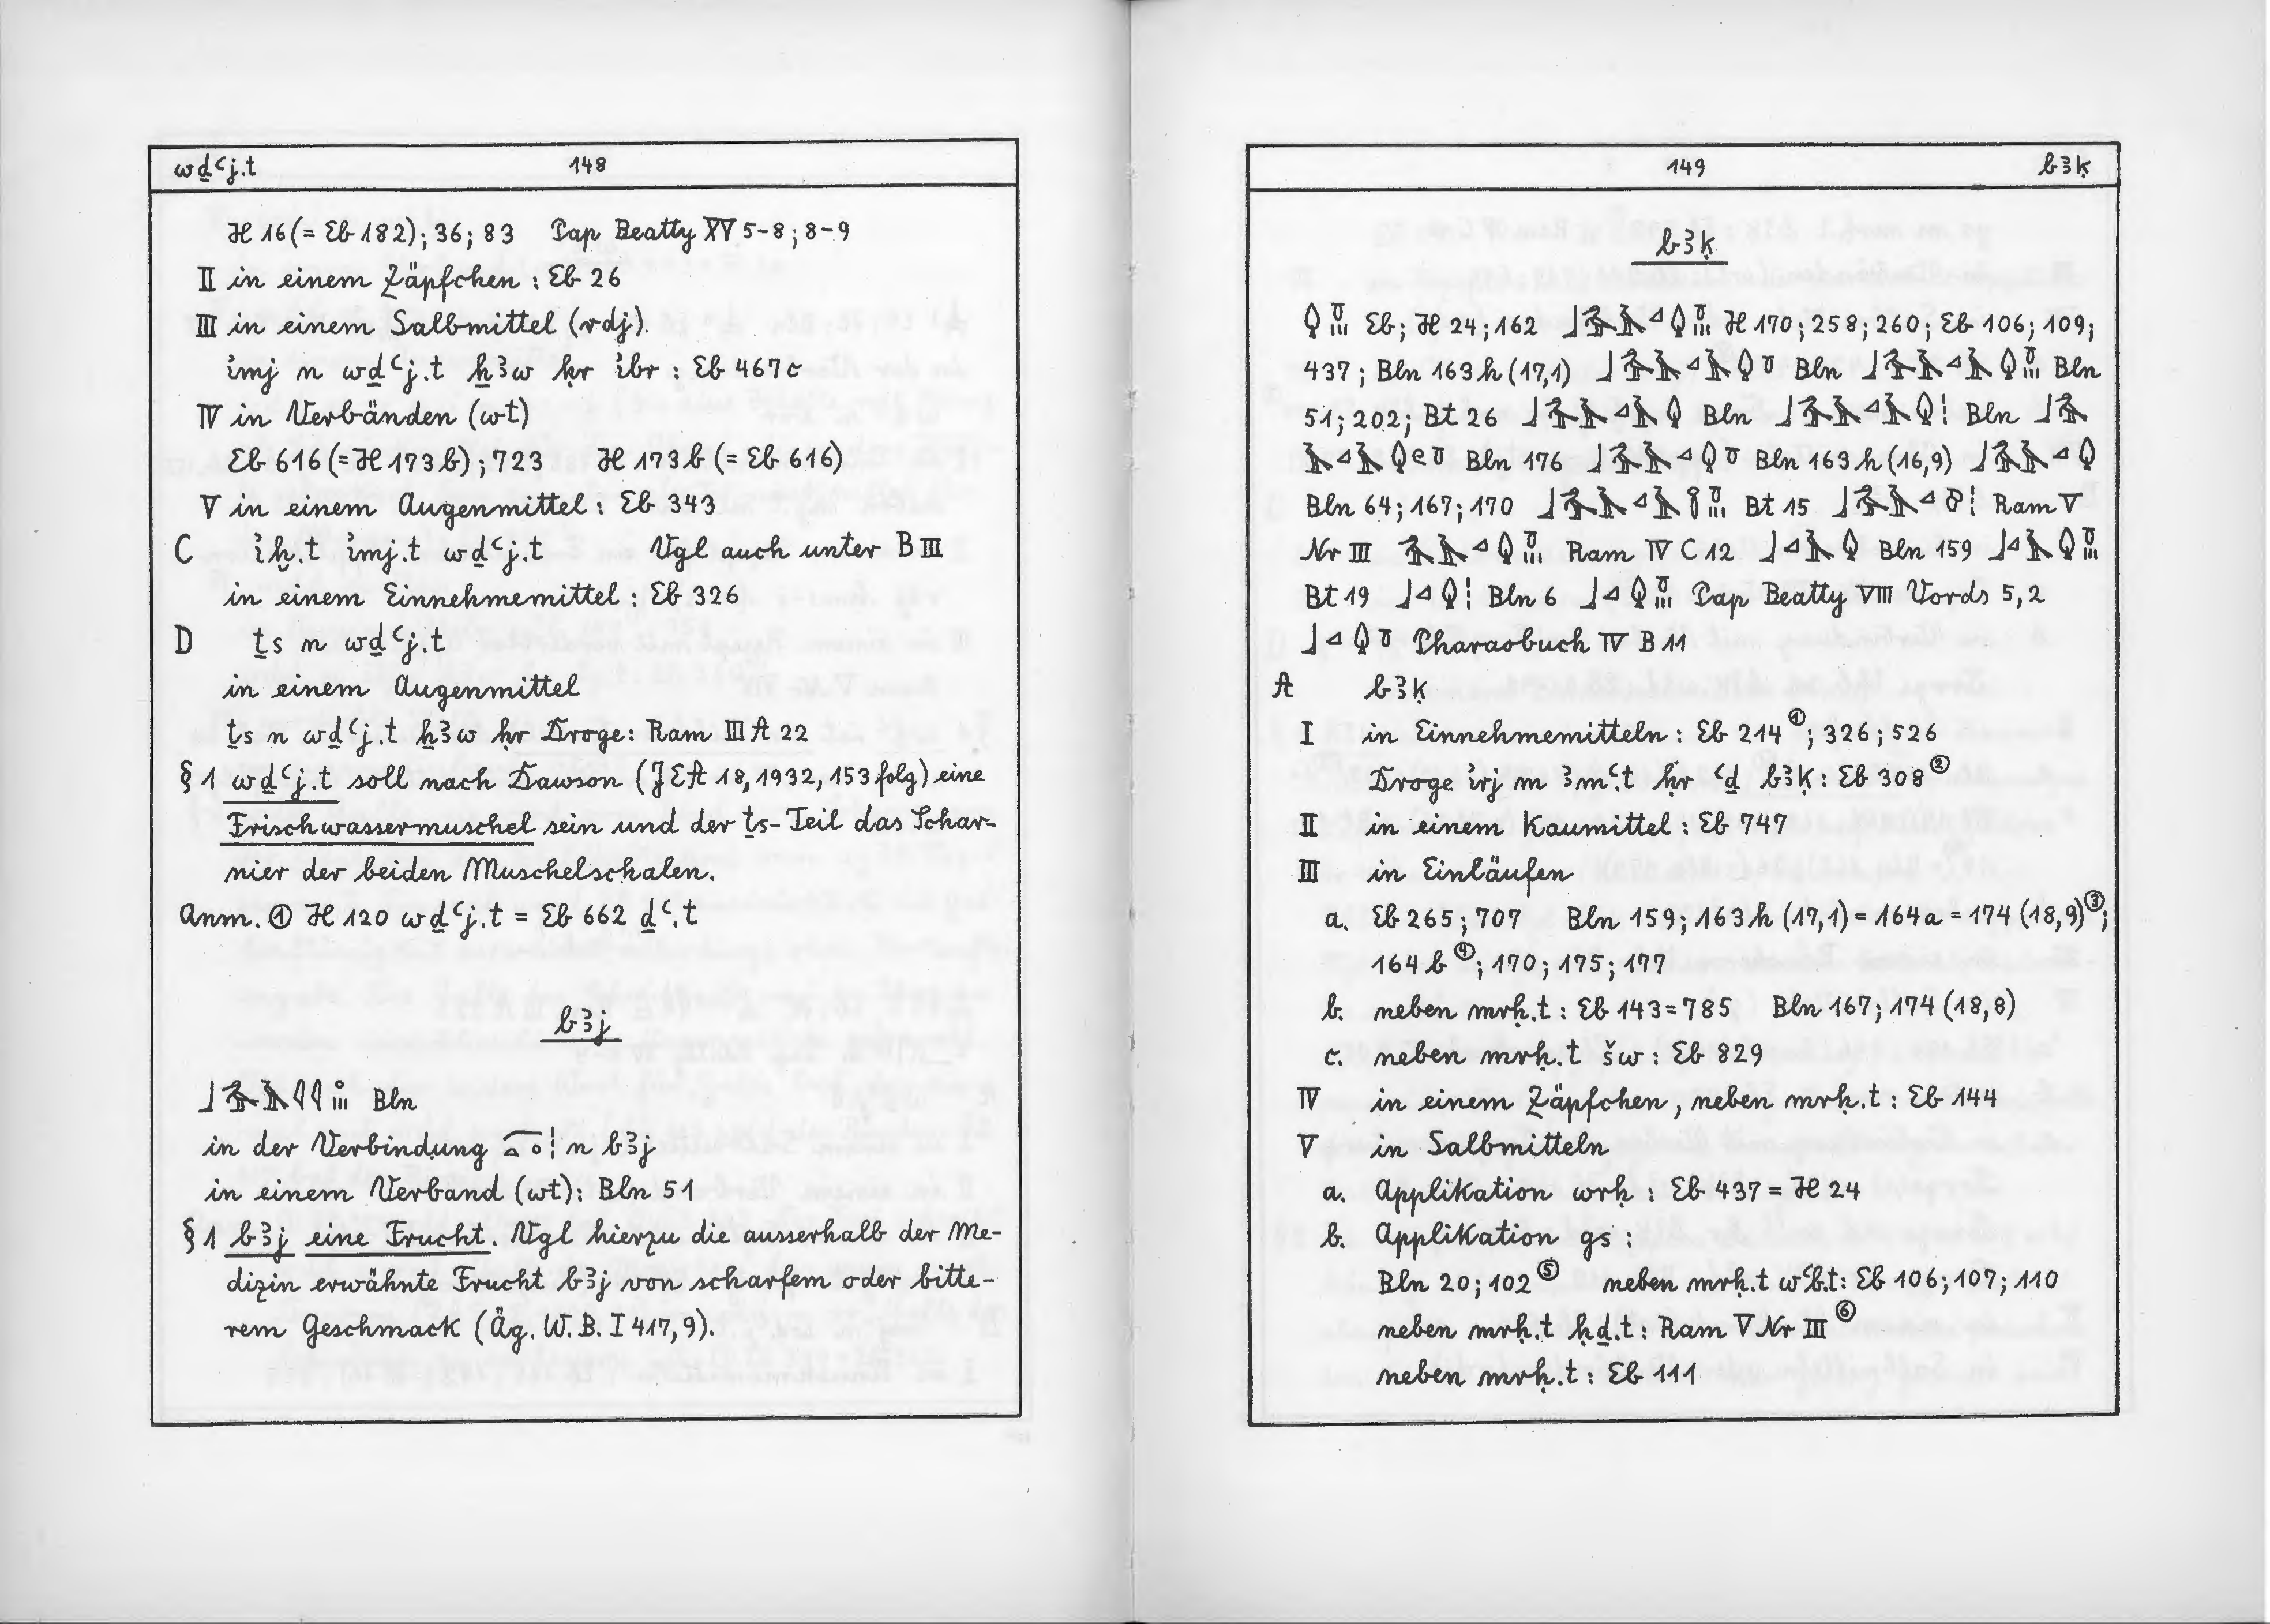 wḏꜥj.t 148
H 16 (= Eb 182); 36; 83 Pap Beatty XV 5-8; 8-9
II in einem Zäpfchen : Eb 26
III in einem Salbmittel (rdj).
ἰmj n wḏꜥj.t ẖꜣw ḥr ἰbr : Eb 467c
IV in Verbänden (wt)
Eb 616 (= H 173b); 723 H 173b (= Eb 616)
V in einem Augenmittel : Eb 343
C ἰḫ.t ἰmj.t wḏꜥj.t Vgl auch unter B III
in einem Einnehmemittel : Eb 326
D ṯs n wḏꜥj.t
in einem Augenmittel
ṯs n wḏꜥj.t ẖꜣw ḥr Droge: Ram III A 22
§ 1 wḏꜥj.t soll nach Dawson (JEA 18, 1932, 153 folg) eine
Frischwassermuschel sein und der ṯs-Teil das Schar-
nier der beiden Muschelschalen.
Anm. ① H 120 wḏꜥj.t = Eb 662 ḏꜥ.t
bꜣj
Bln
in der Verbindung n bꜣj
in einem Verband (wt): Bln 51
§ 1 bꜣj eine Frucht. Vgl hierzu die ausserhalb der Me-
dizin erwähnte Frucht bꜣj von scharfem oder bitte-
rem Geschmack (Äg. W. B. I 417, 9).
149 bꜣḳ
bꜣḳ
Eb; H 24; 162 H 170; 258; 260; Eb 106; 109;
437; Bln 163h (17,1) Bln Bln
51; 202; Bt 26 Bln Bln
Bln 176 Bln 163h (16,9)
Bln 64; 167; 170 Bt 15 Ram V
Nr III Ram IV C 12 Bln 159
Bt 19 Bln 6 Pap Beatty VIII Vords 5,2
Pharaobuch IV B 11
A bꜣḳ
I in Einnehmemitteln : Eb 214①; 326; 526
Droge ἰrj m ꜣmꜥ.t ḥr ꜥḏ bꜣḳ : Eb 308②
II in einem Kaumittel : Eb 747
III in Einläufen
a. Eb 265; 707 Bln 159; 163h (17,1) = 164a = 174 (18,9)③;
164b④; 170; 175; 177
b. neben mrḥ.t : Eb 143 = 785 Bln 167; 174 (18,8)
c. neben mrḥ.t šw : Eb 829
IV in einem Zäpfchen, neben mrḥ.t : Eb 144
V in Salbmitteln
a. Applikation wrḥ : Eb 437 = H 24
b. Applikation gs :
Bln 20; 102⑤ neben mrḥ.t wꜥb.t: Eb 106; 107; 110
neben mrḥ.t ḥḏ.t: Ram V Nr III⑥
neben mrḥ.t : Eb 111